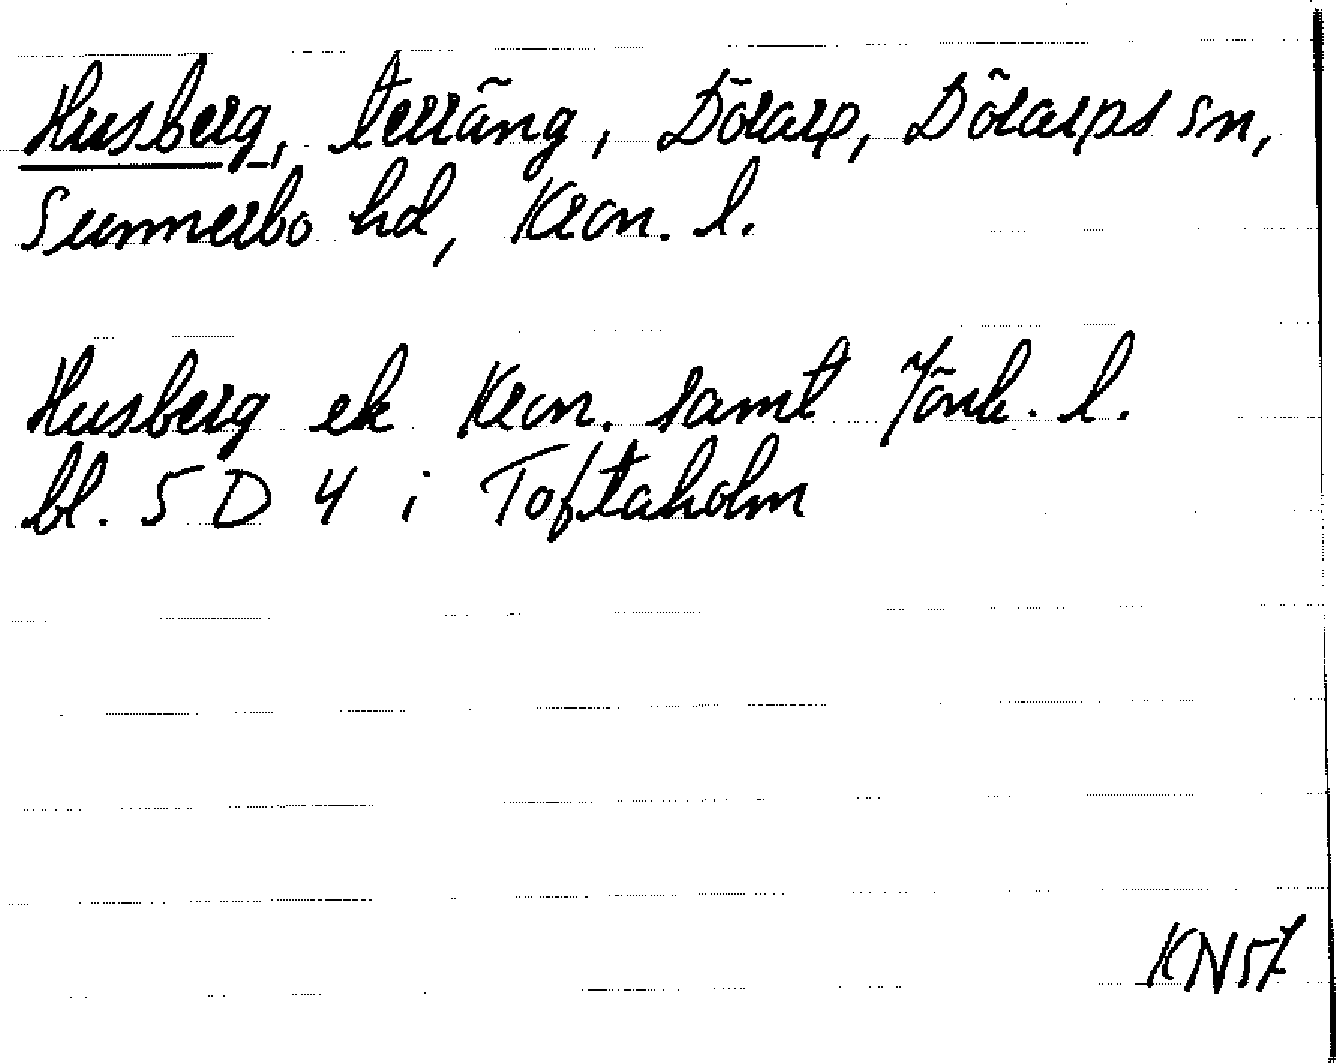 Husberg, terräng, Dörarp, Dörarps sn,
Sunnerbo hd, Kron. l.
Husberg ek Kron. samt Jönk. l.
bl. 5 D 4 i Toftaholm
KN57